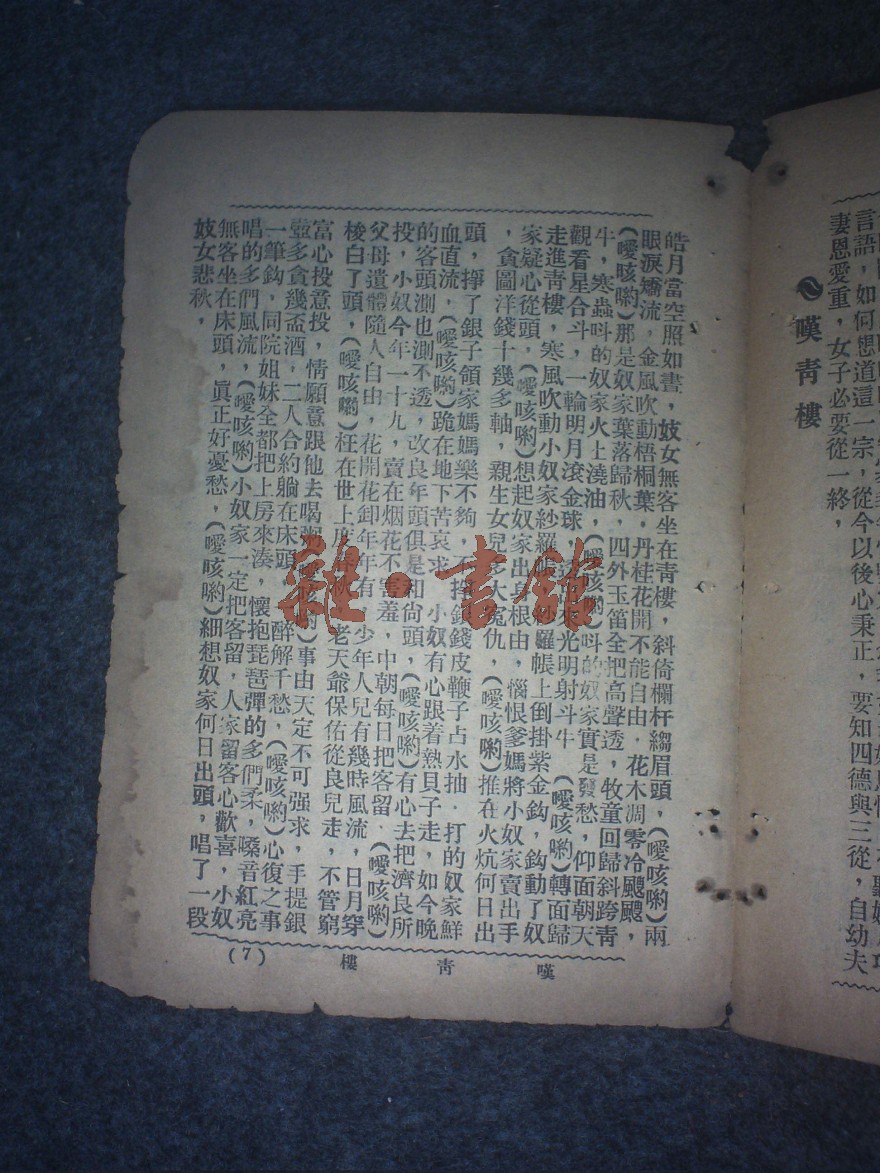 言語，如何想道這一宗，從今以後心秉正，要知四德與三從，自幼夫
妻恩愛重，女子必要從一終，
嘆青樓
皓月當空照如晝，妓女無客坐在青樓，斜倚欄杆縐眉頭，（噯咳喲）兩
眼淚嬌流，金風吹動梧桐葉，丹桂花開不能自由．花木凋零冷颼颼，
（噯咳喲）那是奴家葉落歸秋，四外玉笛全把高聲透，牧童回歸斜跨青
牛，寒蟲呌的奴家火上澆油，（噯咳喲）呌的奴家實是發愁，仰面朝天
觀看星合斗，一輪明月滾金球，光明射斗牛　（噯咳喲）轉面歸
走進青樓，寒風吹動小奴家紗羅帳，紗羅帳上倒掛紫金鈎，鈎動了奴
家疑心從頭，（噯咳喲）想起奴家出身根由，惱恨爹媽將小奴家賣出手
，貪圖洋錢十幾多軸，親生女兒多大冤仇，（噯咳喲）推在火炕何日出
頭，掙了銀子領家媽媽樂不夠，不掙銀錢皮鞭子占水抽．打的奴家鮮
血直流，（噯咳喲）跪在地下苦哀求，小奴有心跟着熱貝子走，如今晚
的客頭測也測不透，改良年頭俱是和尙頭，（噯咳喲）有心去把濟良所
投，小奴今年一十九，賣在烟花不害羞，中朝每日把客留．（噯咳喲）
父母遺體隨人自由，花開花卸年年有，少年人兒有幾時風流，日月穿
梭白了頭，（噯咳喲）枉在世上度春秋，老天爺保佑從良兒走，不管窮
富心投意投，情願意跟他去喝粥，（噯咳喲）事由天定不可强求，手提銀
壺多貪幾盃酒，二人合約躺在床頭，醉解千愁，（噯咳喲）心復之事
一筆鈎，同院姐妹全都把上房來湊，懷抱琵琶彈的多們柔，嗓音紅亮
唱的多們風流，（噯咳喲）小奴家一定把客留，人家留客心歡喜，小奴
無客坐在床頭，眞正好憂愁，（噯咳喲）細想奴家何日出頭，唱了一段
妓女悲秋，
嘆青樓
（7）
雜·書館